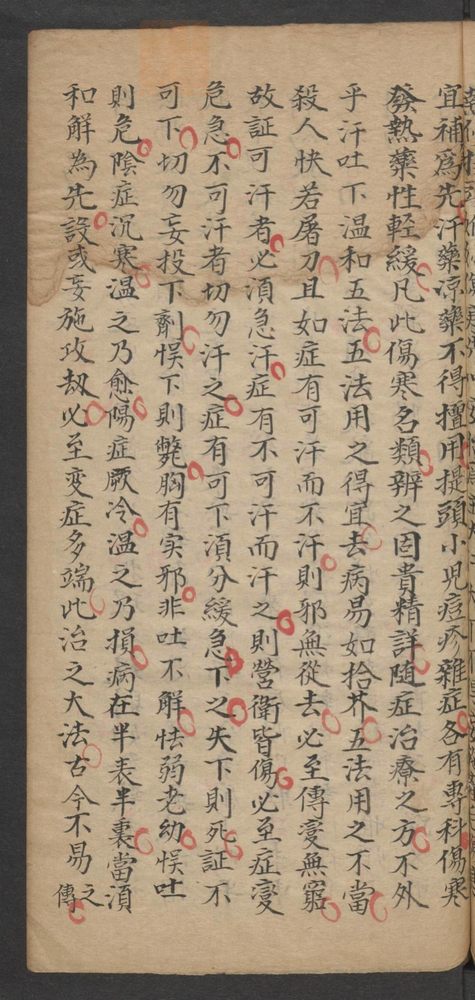 宜補爲先汗藥凉藥不得擅用提頭小児痘疹雜症各有專科傷寒
發熱藥性輕緩凡此傷寒名類辨之固貴精詳随症治療之方不外
乎汗吐下温和五法五法用之得宜去病易如拾芥五法用之不當
殺人快若屠刀且如症有可汗而不汗則邪無從去必至傳变無窮
故証可汗者必湏急汗症有不可汗而汗之則營衛皆傷必至症变
危急不可汗者切勿汗之症有可下湏分緩急下之失下則死証不
可下切勿妄投下劑悞下則斃胸有实邪非吐不解怯弱老幼悞吐
則危陰症沉寒温之乃愈陽症厥冷温之乃損病在半表半裏當湏
和解為先設或妄施攻刼必至变症多端此治之大法古今不易之
傳